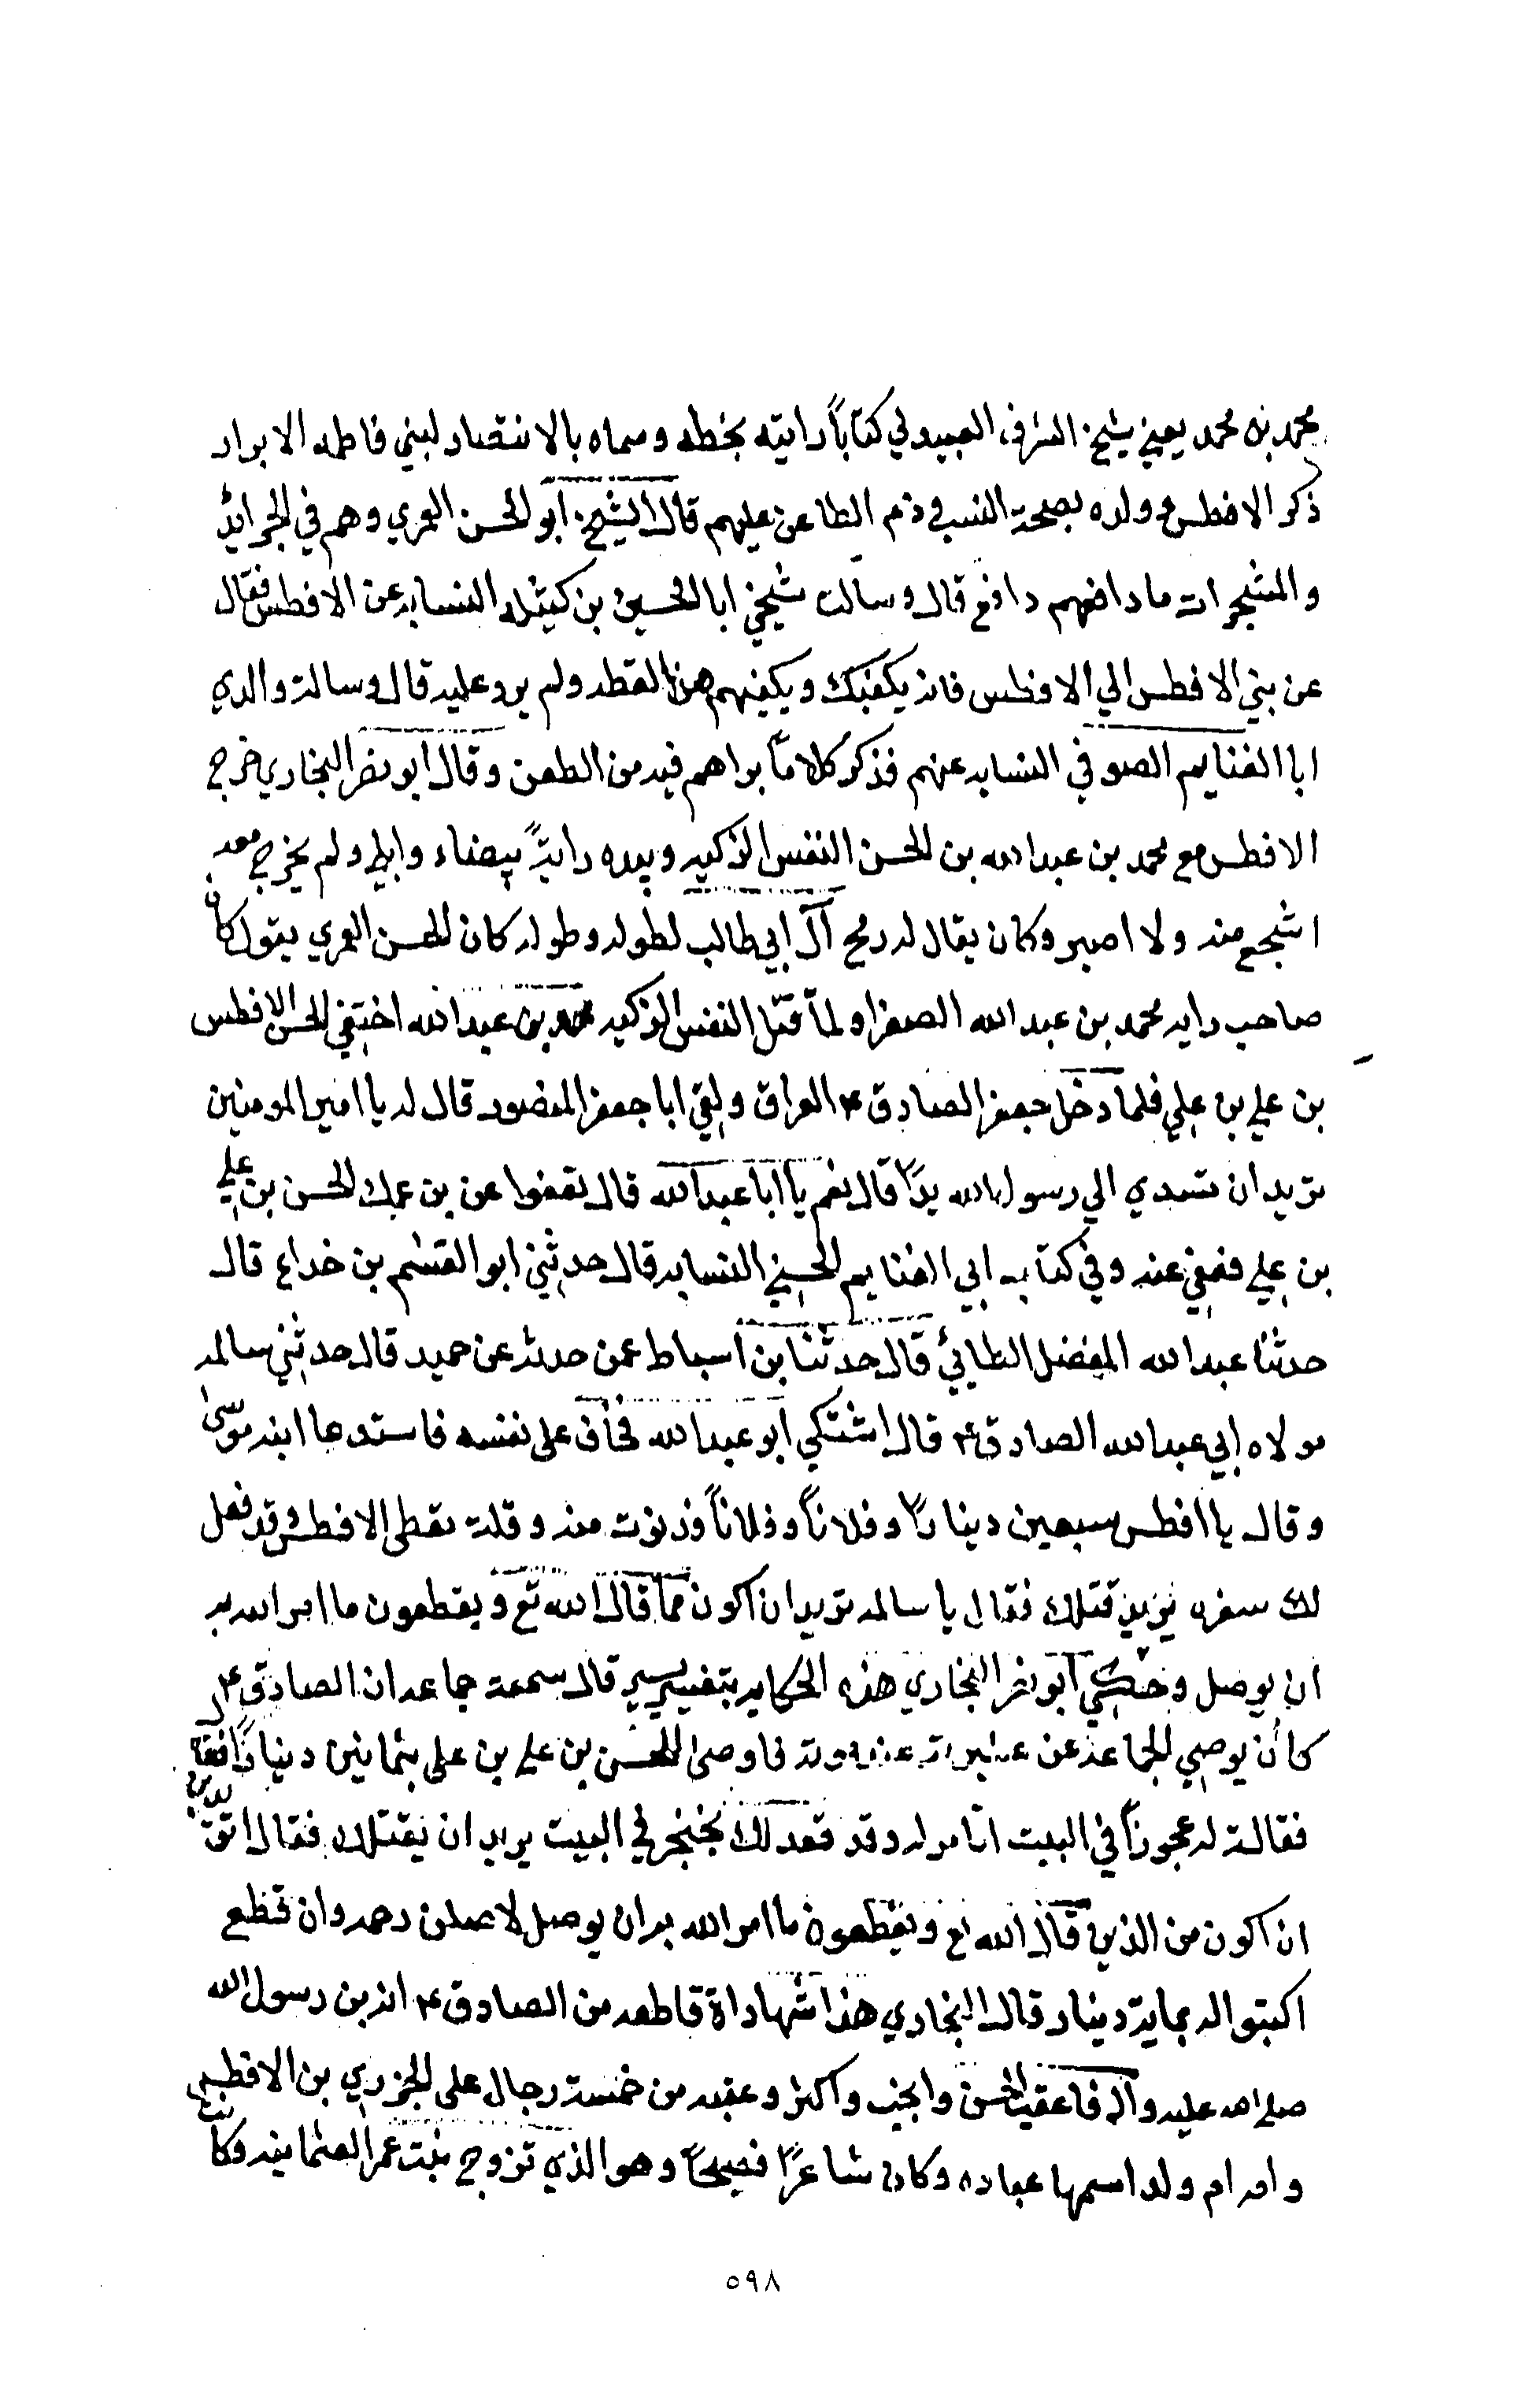 محمد بن محمد يعني شيخ الشرف العبيدلي كتاباً رايته بخطه وسماه بالانتصار لبني فاطمه الابرار
ذكر الافطس وولده بصحة النسب وذم الطاعن عليهم قال الشيخ ابو الحسن العمري وهم في الجرائد
والمشجرات ما دافعهم دافع قال وسالت شيخي ابا الحسين بن كيتله النسابه عن الافطس فقال
عن بني الافطس الي الافطس فانه يكفيك ويكفيهم هذا القطه ولم يرو عليه قال وسالت والدي
ابا الغنايم الصوفي النسابه عنهم فذكر كلاماً براهم فيه من الطعن وقال ابو نصر البخاري خرج
الافطس مع محمد بن عبدالله بن الحسن النفس الزكيه وبيده رايةً بيضاء وابلي ولم يخرج معه
اشجع منه ولا اصبر وكان يقال له رمح آل ابي طالب لطوله وطوله كان الحسن العمري يقول كان
صاحب رايه محمد بن عبد الله الصفرا ولمّا قتل النفس الزكيه محمد بن عبد الله اختفي الحسن الافطس
بن علي بن علي فلما دخل جعفر الصادق ع العراق ولقي ابا جعفر المنصور قال له يا امير المومنين
تريد ان تسدي الي رسول الله يدًا قال نعم يا ابا عبد الله قال تعفوا عن بن عمك الحسن بن علي
بن علي فعفي عنه وفي كتاب ابي الغنايم الحسني النسابه قال حدثني ابو القسم بن خداع قال
حدثنا عبد الله المفضل الطائي قال حدثنا بن اسباط عمن حدثه عن حميد قال حدثني سالمه
مولاه ابي عبد الله الصادق ع قال اشتكي ابو عبد الله فخاف على نفسه فاستدعا ابنه موسى
وقال يا افطس سبعين دينارًا وفلاناً وفلاناً فدنوت منه وقلت تعطى الافطس وقد فعل
لك سفره يريد قتلك فقال يا سالمه تريد ان اكون مما قال الله تع ويقطعون ما امر الله به
ان يوصل وحكي ابو نصر البخاري هذه الحكايه بتغيير يسير قال سمعت جماعه ان الصادق ع
كان يوصي لجماعة عن عشيرته عند موته فاوصى للحسن بن علي بن علي بثمانين دينارًا
فقالت له عجوزاً في البيت اتامر له وقد قعد لك بخنجر في البيت يريد ان يقتلك فقال
ان اكون من الذين قال الله تع ويقطعون ما امر الله به ان يوصل لاصلن رحمه وان قطع
اكتبوا له بماية دينار قال البخاري هذا شهاداة قاطعه من الصادق ع انه بن رسول الله
صلى الله عليه وآله فاعقب الحسن وانجب واكثر وعقبه من خمسة رجال علي الجزري بن الافطس
وامه ام ولد اسمها عباده وكان شاعرًا فصيحاً وهو الذي تزوج بنت عمر العثمانيه وكانت
٥٩٨